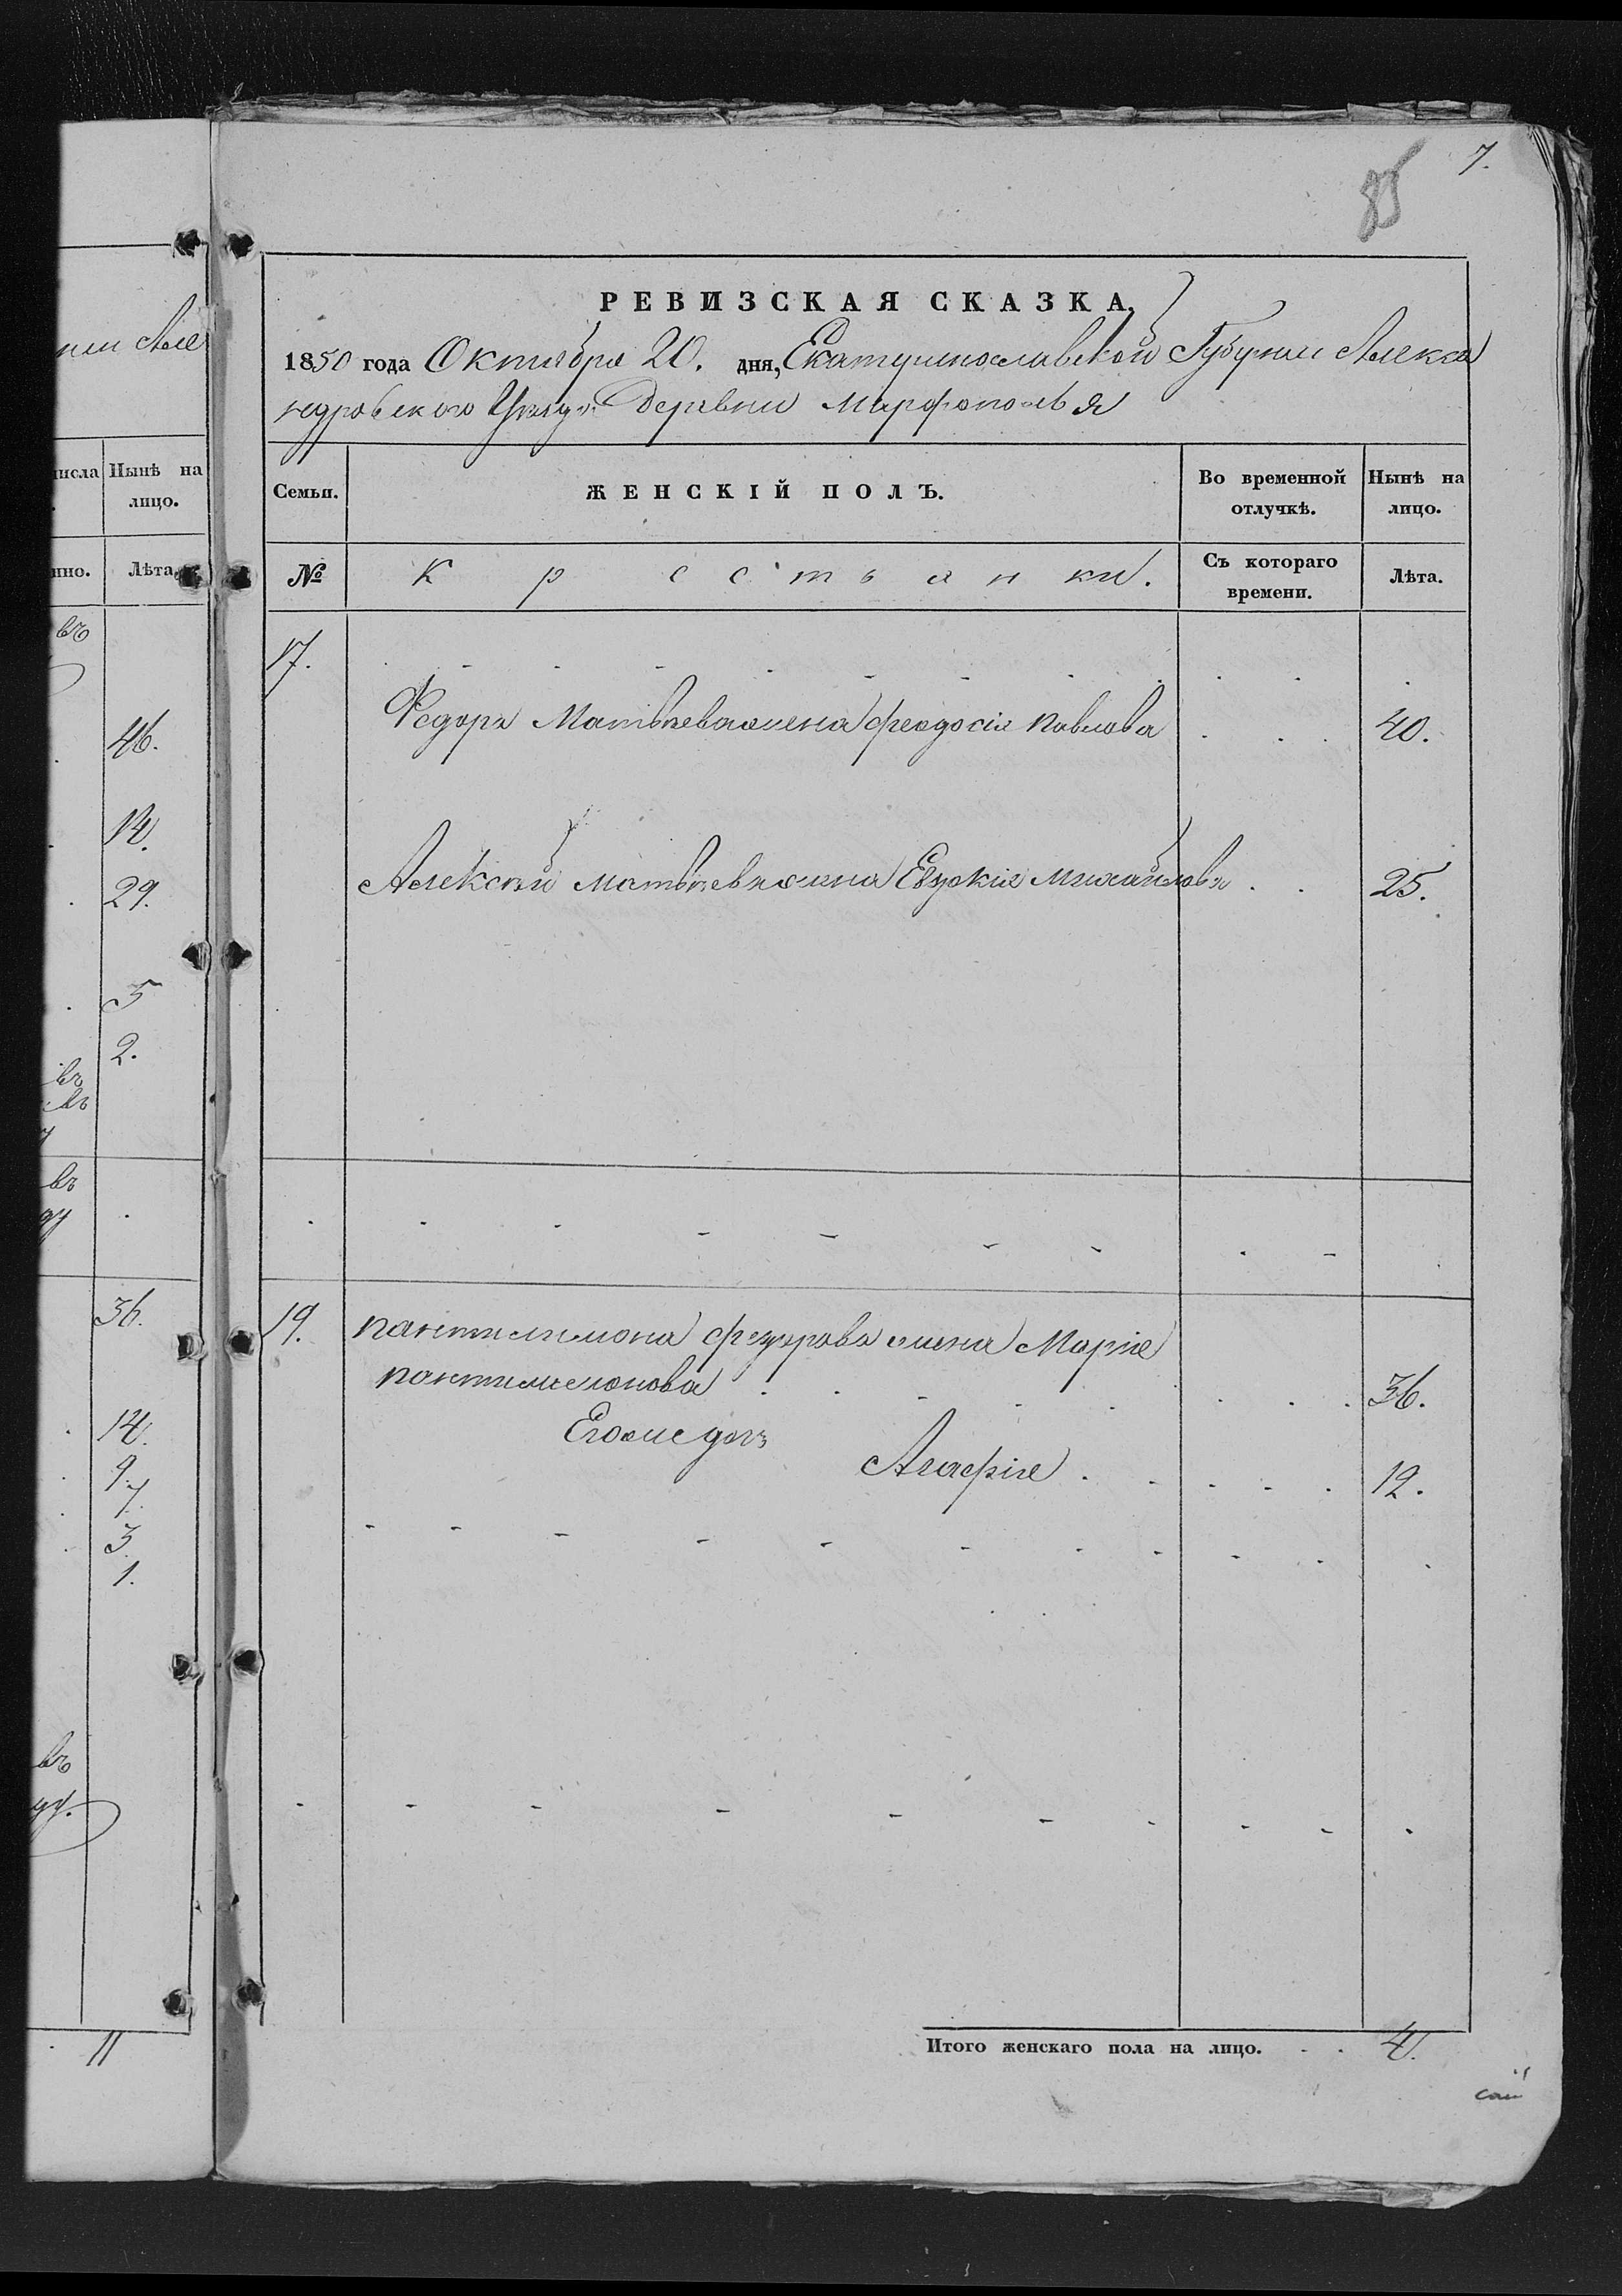 нии Алек
числа Нынѣ на
лицо.
нно. Лѣта.
въ
46.
14.
29.
5
2.
въ
въ
въ
ду
36.
14.
9.
7.
3
1.
въ
ду.
11
7.
85
РЕВИЗСКАЯ СКАЗКА.
1850 года Октября 20. дня, Екатеринославской Губернии Алекса
ндровского Уезда Деревни Марфополья
Семьи. ЖЕНСКІЙ ПОЛЪ. Во временной отлучкѣ. Нынѣ на лицо.
№ Крестьянки. Съ котораго времени. Лѣта.
17.
Федора Матвѣева жена Феодосія Павлова 40.
Алексѣй Матвѣева жена Евдокія Михайлова 25.
19. Пантилимона Федорова жена Марія
Пантилимонова 36.
Его же дочь
Агафія 12.
Итого женскаго пола на лицо. 4.